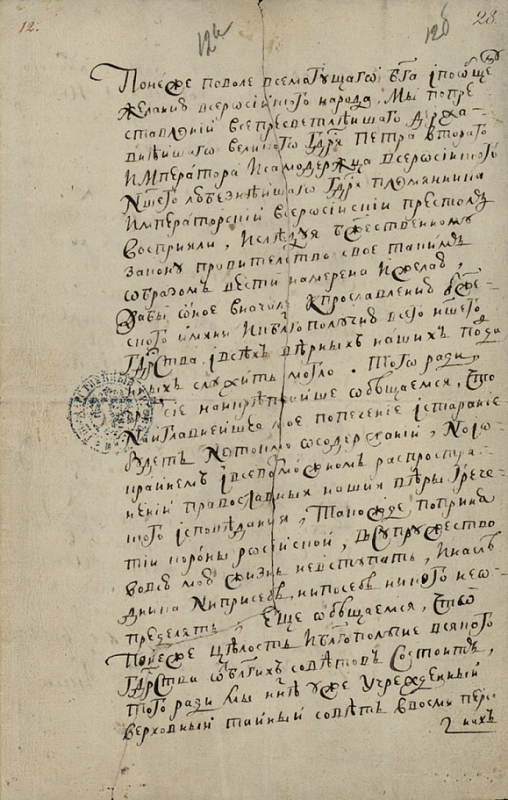 12. 12а 12б 28.
Понеже поволе всемогущаго бга іпообще
желанию всеросіиского народа, Мы попре
ставлениі всепресветлеишаго држа
внѣишаго великого Гдря Петра втораго
Императора Исамодержца всеросіиского
Ншего любезнѣишаго Гдря племянника
Императорскиі всеросіискиі престолъ
восприяли, Ислѣдуя бжественному
закону правительство свое такимъ
образомъ вести намерена Ижелаю,
дабы оное вначале кпрославлению бже
ского имяни Иблгополучию всего ншего
Гдрства, івсѣхъ вѣрныхъ нашихъ подда
ныхъ служить могло. Того ради,
чрезъ сіе наикрѣпчайше обѣщаемся, что
Наиглавнейшее мое попечение істарание
будетъ Нетокмо осодержаниі, Ноіо
крайнемъ івсевозможномъ распростра
нениі православныя нашия вѣры Грече
ского ісповѣдания, Такожде поприня
тіи короны росиіскоі, всупружество
вовсю мою жизнь невступать, Инаслѣ
дника Ниприсебѣ, нипосебѣ никого нео
пределять, Еще обѣщаемся, Что
Понеже цѣлость Иблгополучие всякого
Гдрства облгихъ совѣтовъ Состоитъ,
Того ради Мы ннѣ уже Учрежденныі
верховныі таиныі совѣтъ ввосми персо
нахъ